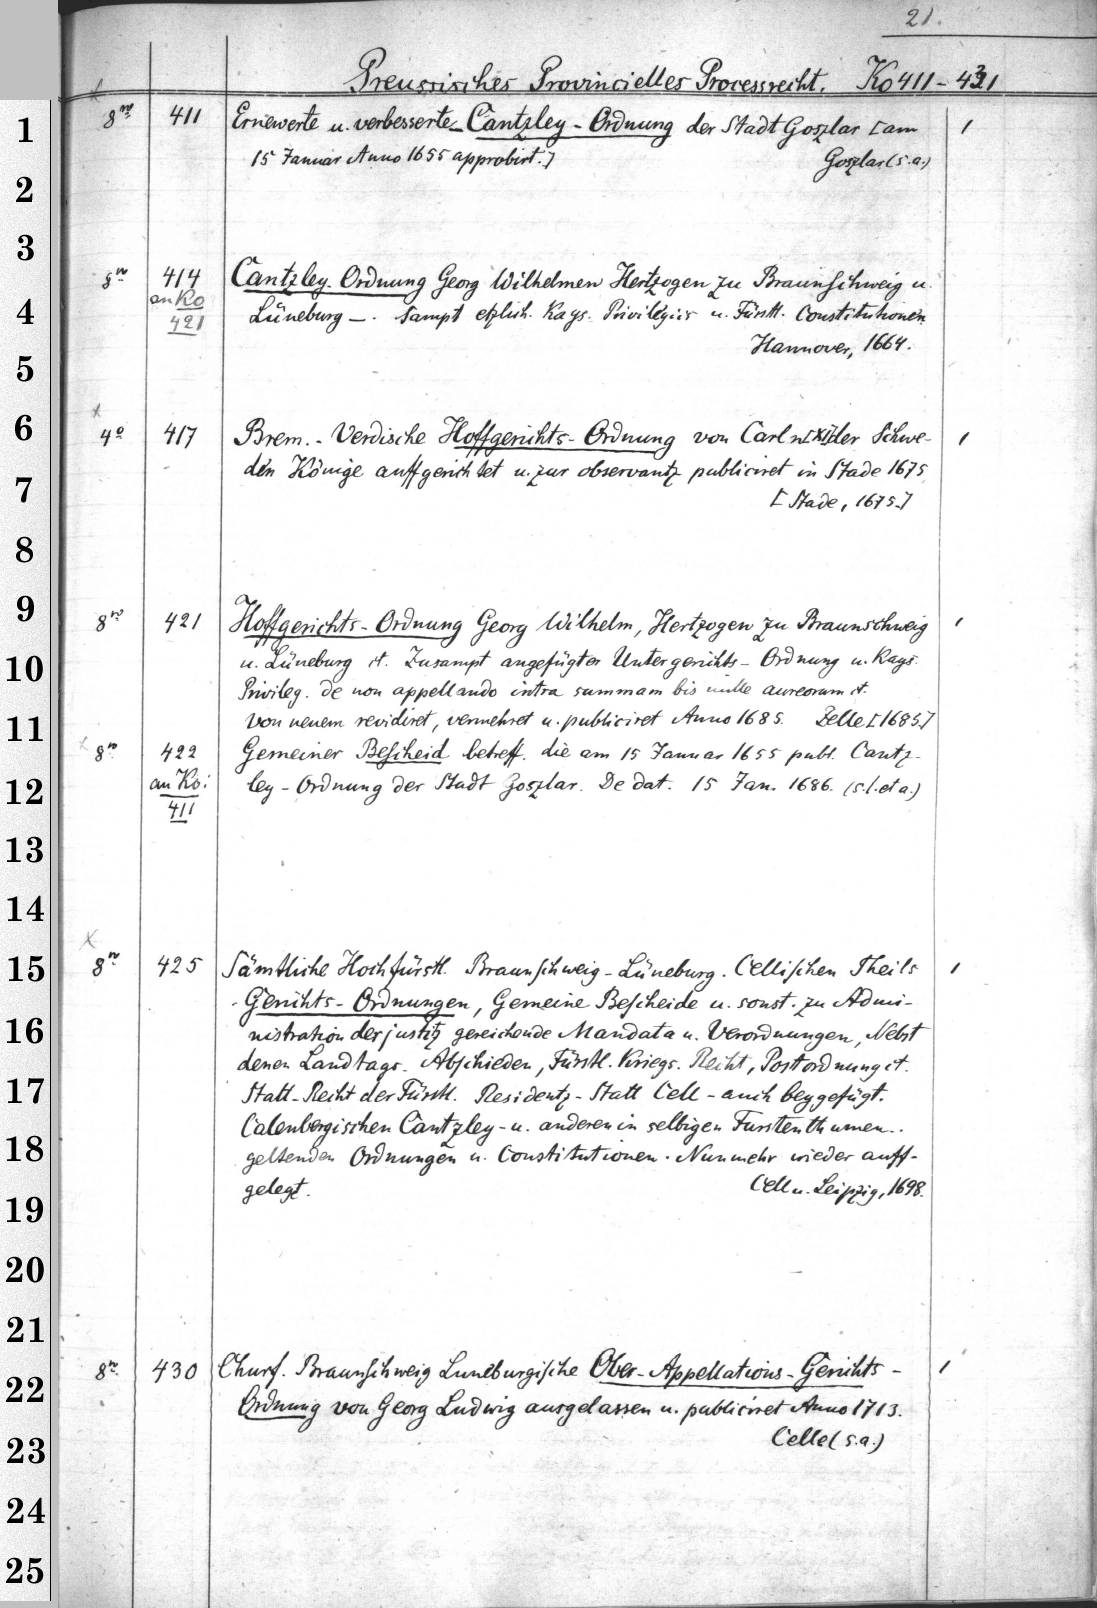 21.
Preussisches Provincielles Processrecht. Ko 411 - 431
1 8no 411 Ernewerte u. verbesserte Cantzley - Ordnung der Stadt Goszlar [am 1
15 Januar Anno 1655 approbirt.] Goszlar (s.a.)
2
3
8no 414 Cantzley. Ordnung Georg Wilhelmen Hertzogen zu Braunschweig u.
4 an Ko Lüneburg —. Sampt etzlich. Kays. Privilegiis u. Fürstl. Constitutionen
421 Hannover, 1664.
5
6 4o 417 Brem. - Verdische Hoffgerichts - Ordnung von Carl n[XI] der Schwe- 1
den Könige auffgerichtet u. zur observantz publiciret in Stade 1675
7 [Stade, 1675.]
8
9 8no 421 Hoffgerichts - Ordnung Georg Wilhelm, Hertzogen zu Braunschweig 1
10 u. Lüneburg et. Zusampt angefügter Untergerichts - Ordnung u. Kays.
Privileg. de non appellando intra summam bis mille aureorum et.
11 von neuem revidiret, vermehret u. publiciret Anno 1685. Zelle [1685.]
8no 422 Gemeiner Bescheid betreff. die am 15 Januar 1655 publ. Cantz-
12 an Ko: ley - Ordnung der Stadt Goszlar. De dat. 15 Jan. 1686. (s.l. et a.)
411
13
14
15 8no 425 Sämtliche Hochfürstl. Braunschweig - Lüneburg. Cellischen Theils 1
Gerichts - Ordnungen, Gemeine Bescheide u. sonst. zu Admi-
16 nistration der justitz gereichende Mandata u. Verordnungen, Nebst
denen Landtags. Abschieden, Fürstl. Kriegs. Recht, Postordnung et.
17 Statt - Recht der Fürstl. Residentz - Statt Cell - auch beygefügt.
Calenbergischen Cantzley - u. anderen in selbigen Furstenthumen..
18 geltenden Ordnungen u. Constitutionen. Nunmehr wieder auff-
19 gelegt. Cell u. Leipzig, 1698.
20
21
22 8no 430 Churf. Braunschweig Luneburgische Ober - Appellations - Gerichts - 1
Ordnung von Georg Ludwig ausgelassen u. publiciret Anno 1713.
23 Celle (s.a.)
24
25